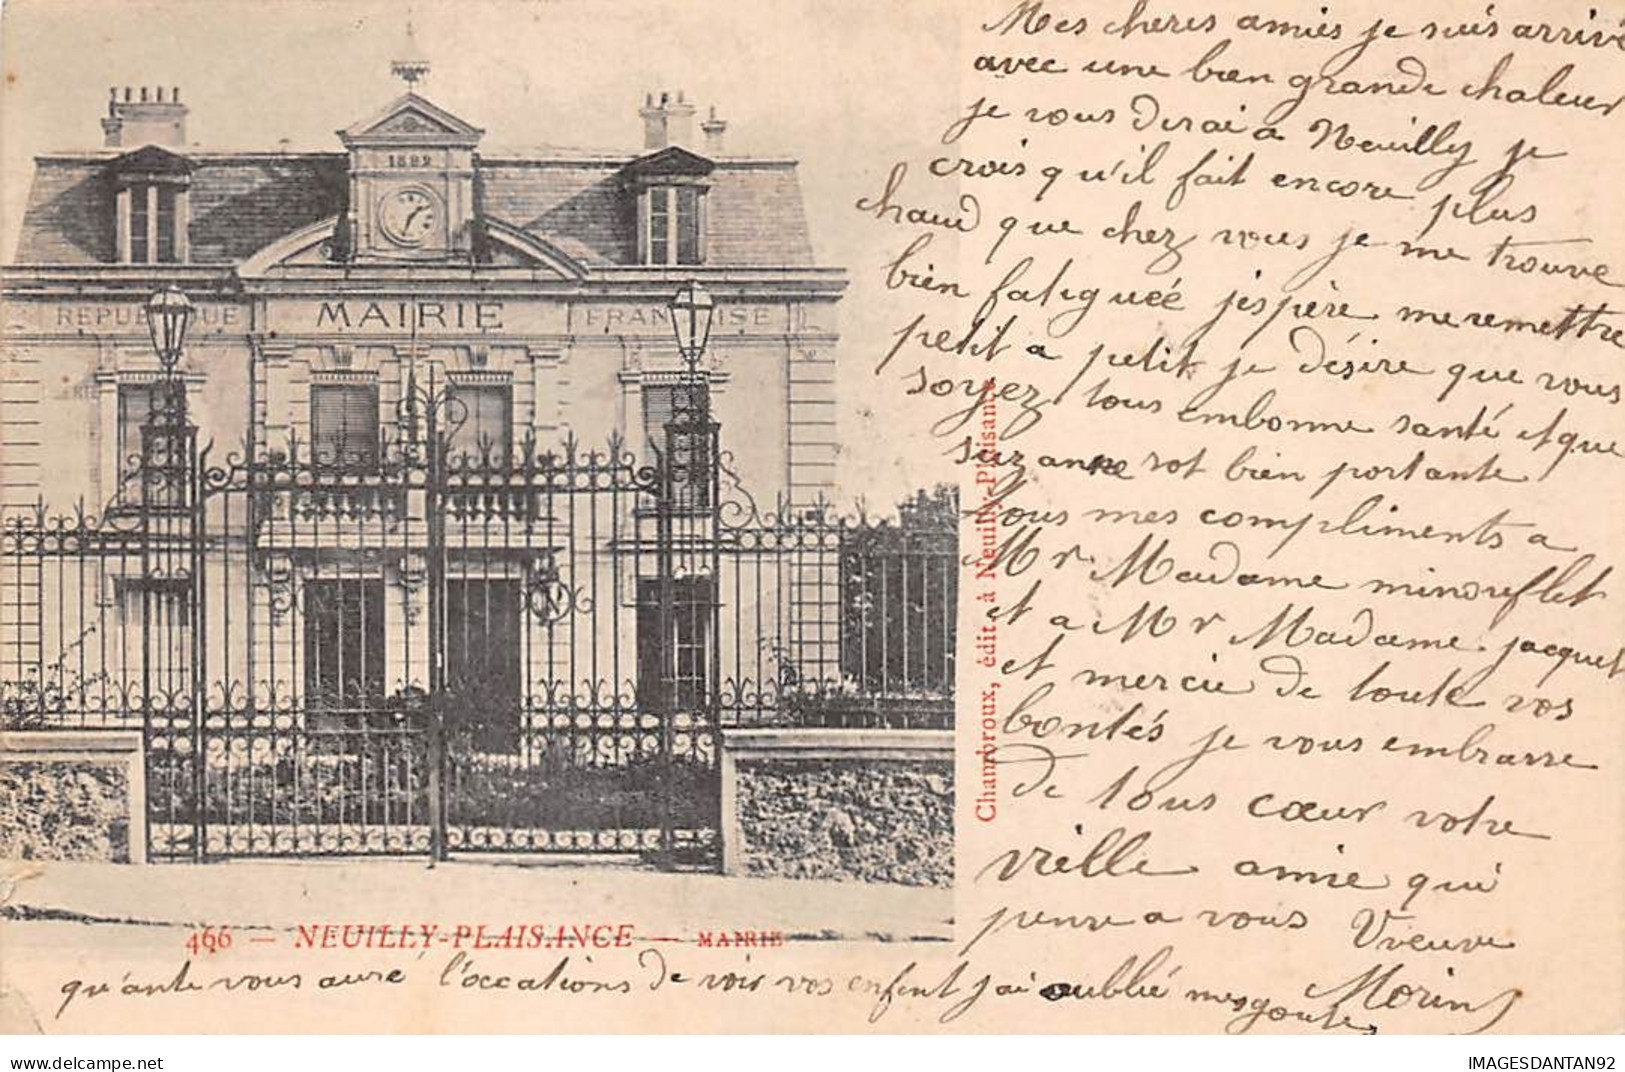 Mes cheres amies je suis arrivé
avec une bien grande chaleur
je vous dirai a Neuilly je
crois qu'il fait encore plus
chaud que chez vous je me trouve
bien fatiguéé j'espère me remettre
petit a petit je désire que vous
soyez tous enbonne santé et que
suzanne sot bien portante
tous mes compliments a
Mr Madame minouflet
et a Mr Madame jacquet
et mercie de toute vos
bontés je vous embrasse
de tous cœur votre
vielle amie qui
pense a vous Vveuve
Morin
qu'ante vous auré l'occations de voir vos enfent j'ai oublié mes goute
1882
REPUBLIQUE MAIRIE FRANÇAISE
Chambroux, édit. à Neuilly-Plaisance
466 — NEUILLY-PLAISANCE — MAIRIE
https://www.delcampe.net
IMAGESDANTAN92